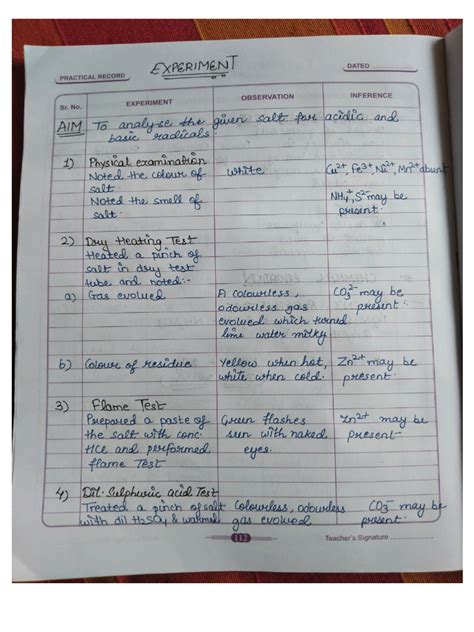 EXPERIMENT
PRACTICAL RECORD
DATED
Sr. No. EXPERIMENT OBSERVATION INFERENCE
AIM To analyse the given salt for acidic and
basic radicals.
1) Physical examination
Noted the colour of white Cu2+, Fe3+, Ni2+, Mn2+ absent
salt.
Noted the smell of NH4+, S2- may be
salt. present.
2) Dry Heating Test
Heated a pinch of
salt in dry test
tube and noted:-
a) Gas evolved A colourless, CO3 2- may be
odourless gas present.
evolved which turned
lime water milky
b) Colour of residue Yellow when hot, Zn2+ may be
white when cold. present.
3) Flame Test
Prepared a paste of Green flashes Zn2+ may be
the salt with conc. seen with naked present
HCl and performed eyes.
flame Test
4) Dil. Sulphuric acid Test
Treated a pinch of salt Colourless, odourless CO3 2- may be
with dil H2SO4 & warmed gas evolved present.
112
Teacher's Signature